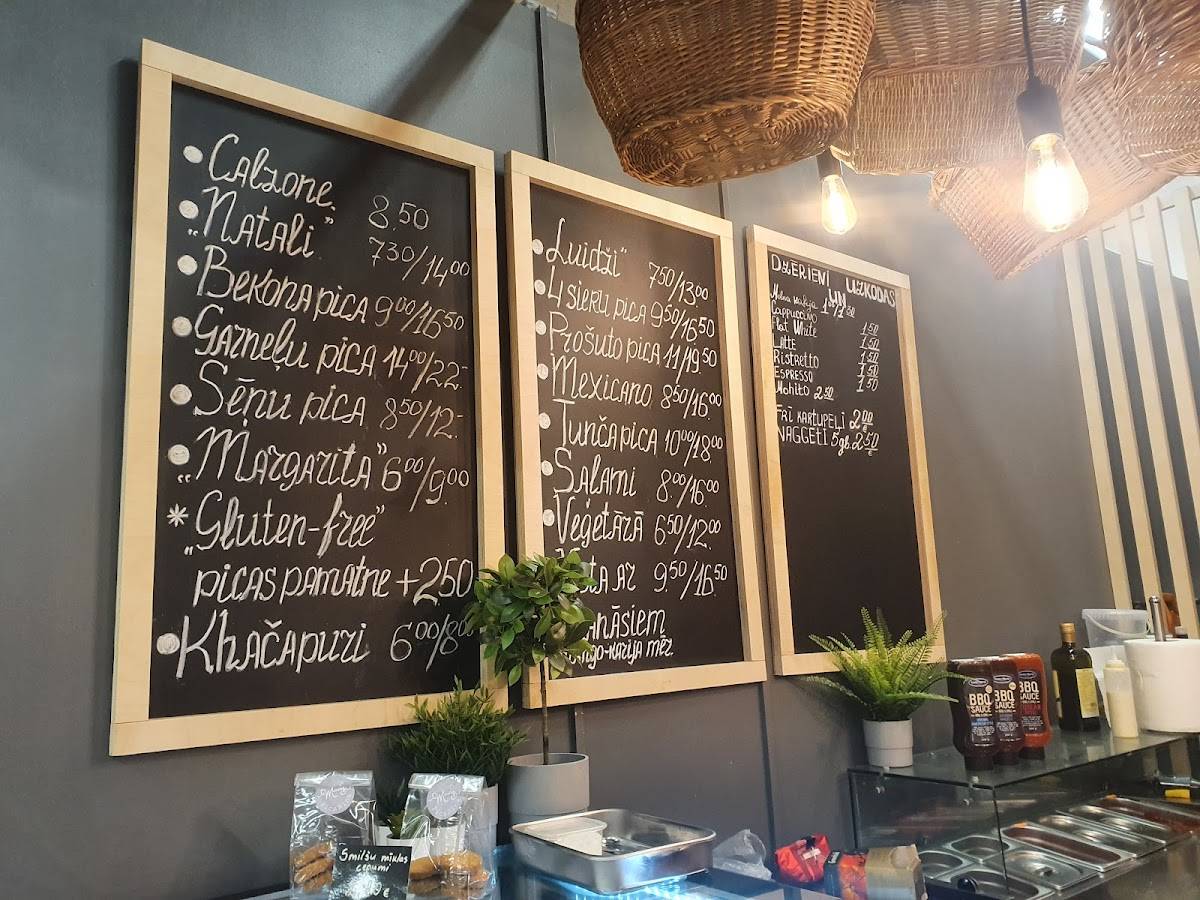 Calzone 8,50
„Natali" 730/1400
Bekona pica 900/1650
Garneļu pica 1400/22-
Sēņu pica 850/12-
„Margarita" 600/900
* „Gluten-free"
picas pamatne +2,50
Khačapuri 600/800
Luidži" 750/1300
4 sieru pica 950/1650
Prošuto pica 11/1950
Mexicano 850/1600
Tunča pica 1000/1800
Salami 800/1600
Veģetārā 650/1200
ar 950/1650
mēr.
DZĒRIENI UN UZKODAS
Cappuccino
Flat White 1 50
Latte 1 50
Ristretto 1 50
Espresso 1 50
Mohito 2 50
FRĪ KARTUPEĻI 2 00 €
NAGGETI 5gb. 2 50 €
BBQ SAUCE
BBQ SAUCE
BBQ SAUCE
Smilšu mīklas
cepumi